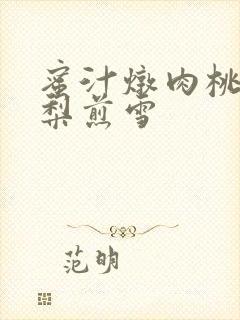 蜜汁燉肉桃
梨煎雪
范明